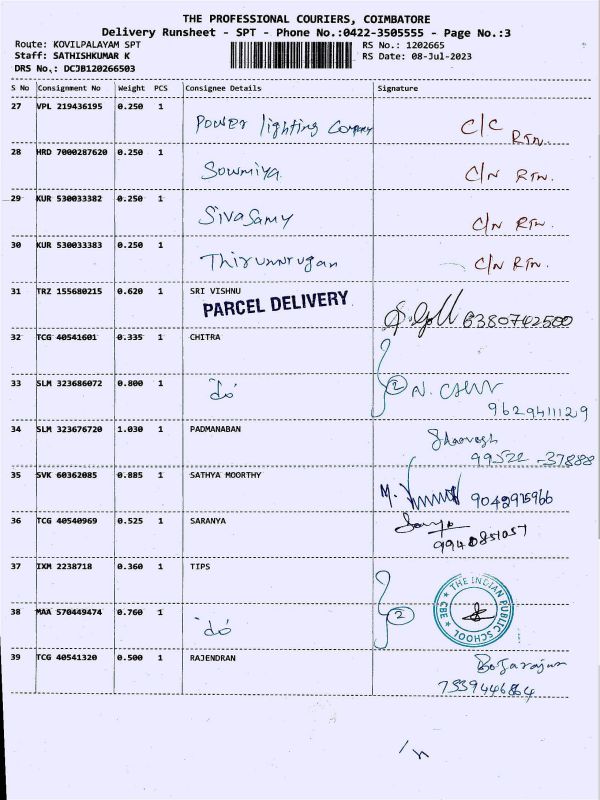 THE PROFESSIONAL COURIERS, COIMBATORE
Delivery Runsheet - SPT - Phone No.:0422-3505555 - Page No.:3
Route: KOVILPALAYAM SPT
Staff: SATHISHKUMAR K
DRS No.: DCJB120266503
RS No.: 1202665
RS Date: 08-Jul-2023
S No Consignment No Weight PCS Consignee Details Signature
27 VPL 219436195 0.250 1 Power lighting Company C/C RTN.
28 HRD 7000287620 0.250 1 Sowmiya. C/N RTN.
29 KUR 530033382 0.250 1 Sivasamy C/N RTN.
30 KUR 530033383 0.250 1 Thirumurugan C/N RTN.
31 TRZ 155680215 0.620 1 SRI VISHNU
PARCEL DELIVERY 6380742500
32 TCG 40541601 0.335 1 CHITRA
33 SLM 323686072 0.800 1 do 2 N.
9629411129
34 SLM 323676720 1.030 1 PADMANABAN
99522-37888
35 SVK 60362085 0.885 1 SATHYA MOORTHY M. 9042915966
36 TCG 40540969 0.525 1 SARANYA
9940851057
37 IXM 2238718 0.360 1 TIPS
38 MAA 570449474 0.760 1 do 2
THE INDIAN PUBLIC SCHOOL CBE
39 TCG 40541320 0.500 1 RAJENDRAN
7339446864